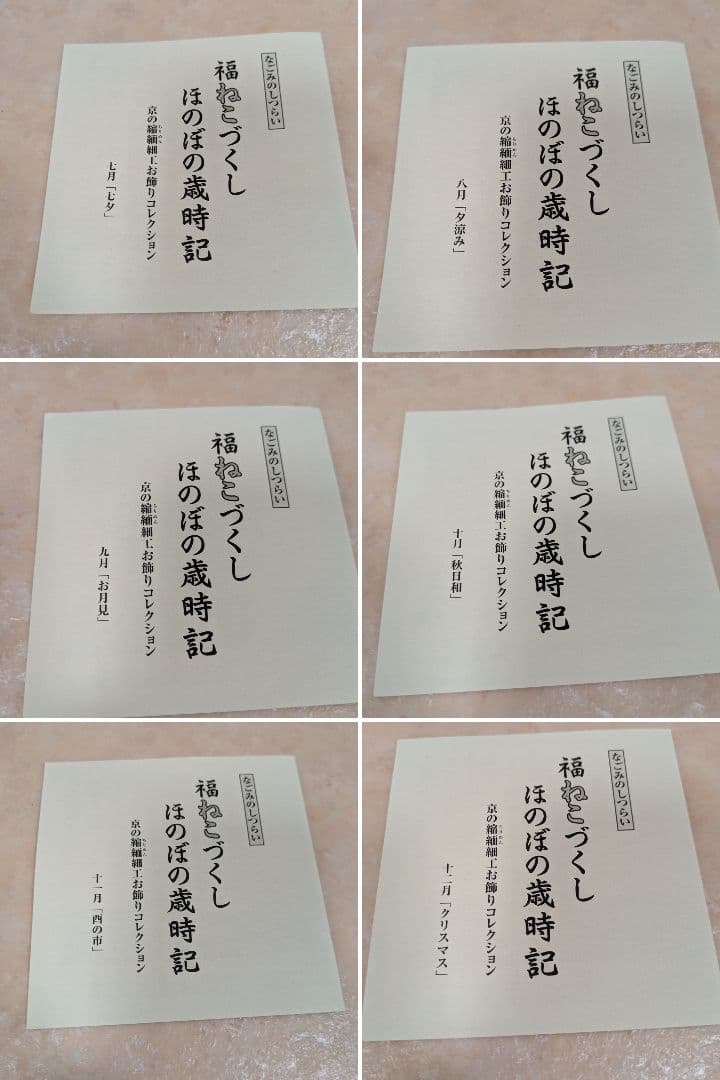 なごみのしつらい
福ねこづくし
ほのぼの歳時記
京の縮緬細工お飾りコレクション
七月「七夕」
なごみのしつらい
福ねこづくし
ほのぼの歳時記
京の縮緬細工お飾りコレクション
八月「夕涼み」
なごみのしつらい
福ねこづくし
ほのぼの歳時記
京の縮緬細工お飾りコレクション
九月「お月見」
なごみのしつらい
福ねこづくし
ほのぼの歳時記
京の縮緬細工お飾りコレクション
十月「秋日和」
なごみのしつらい
福ねこづくし
ほのぼの歳時記
京の縮緬細工お飾りコレクション
十一月「酉の市」
なごみのしつらい
福ねこづくし
ほのぼの歳時記
京の縮緬細工お飾りコレクション
十二月「クリスマス」